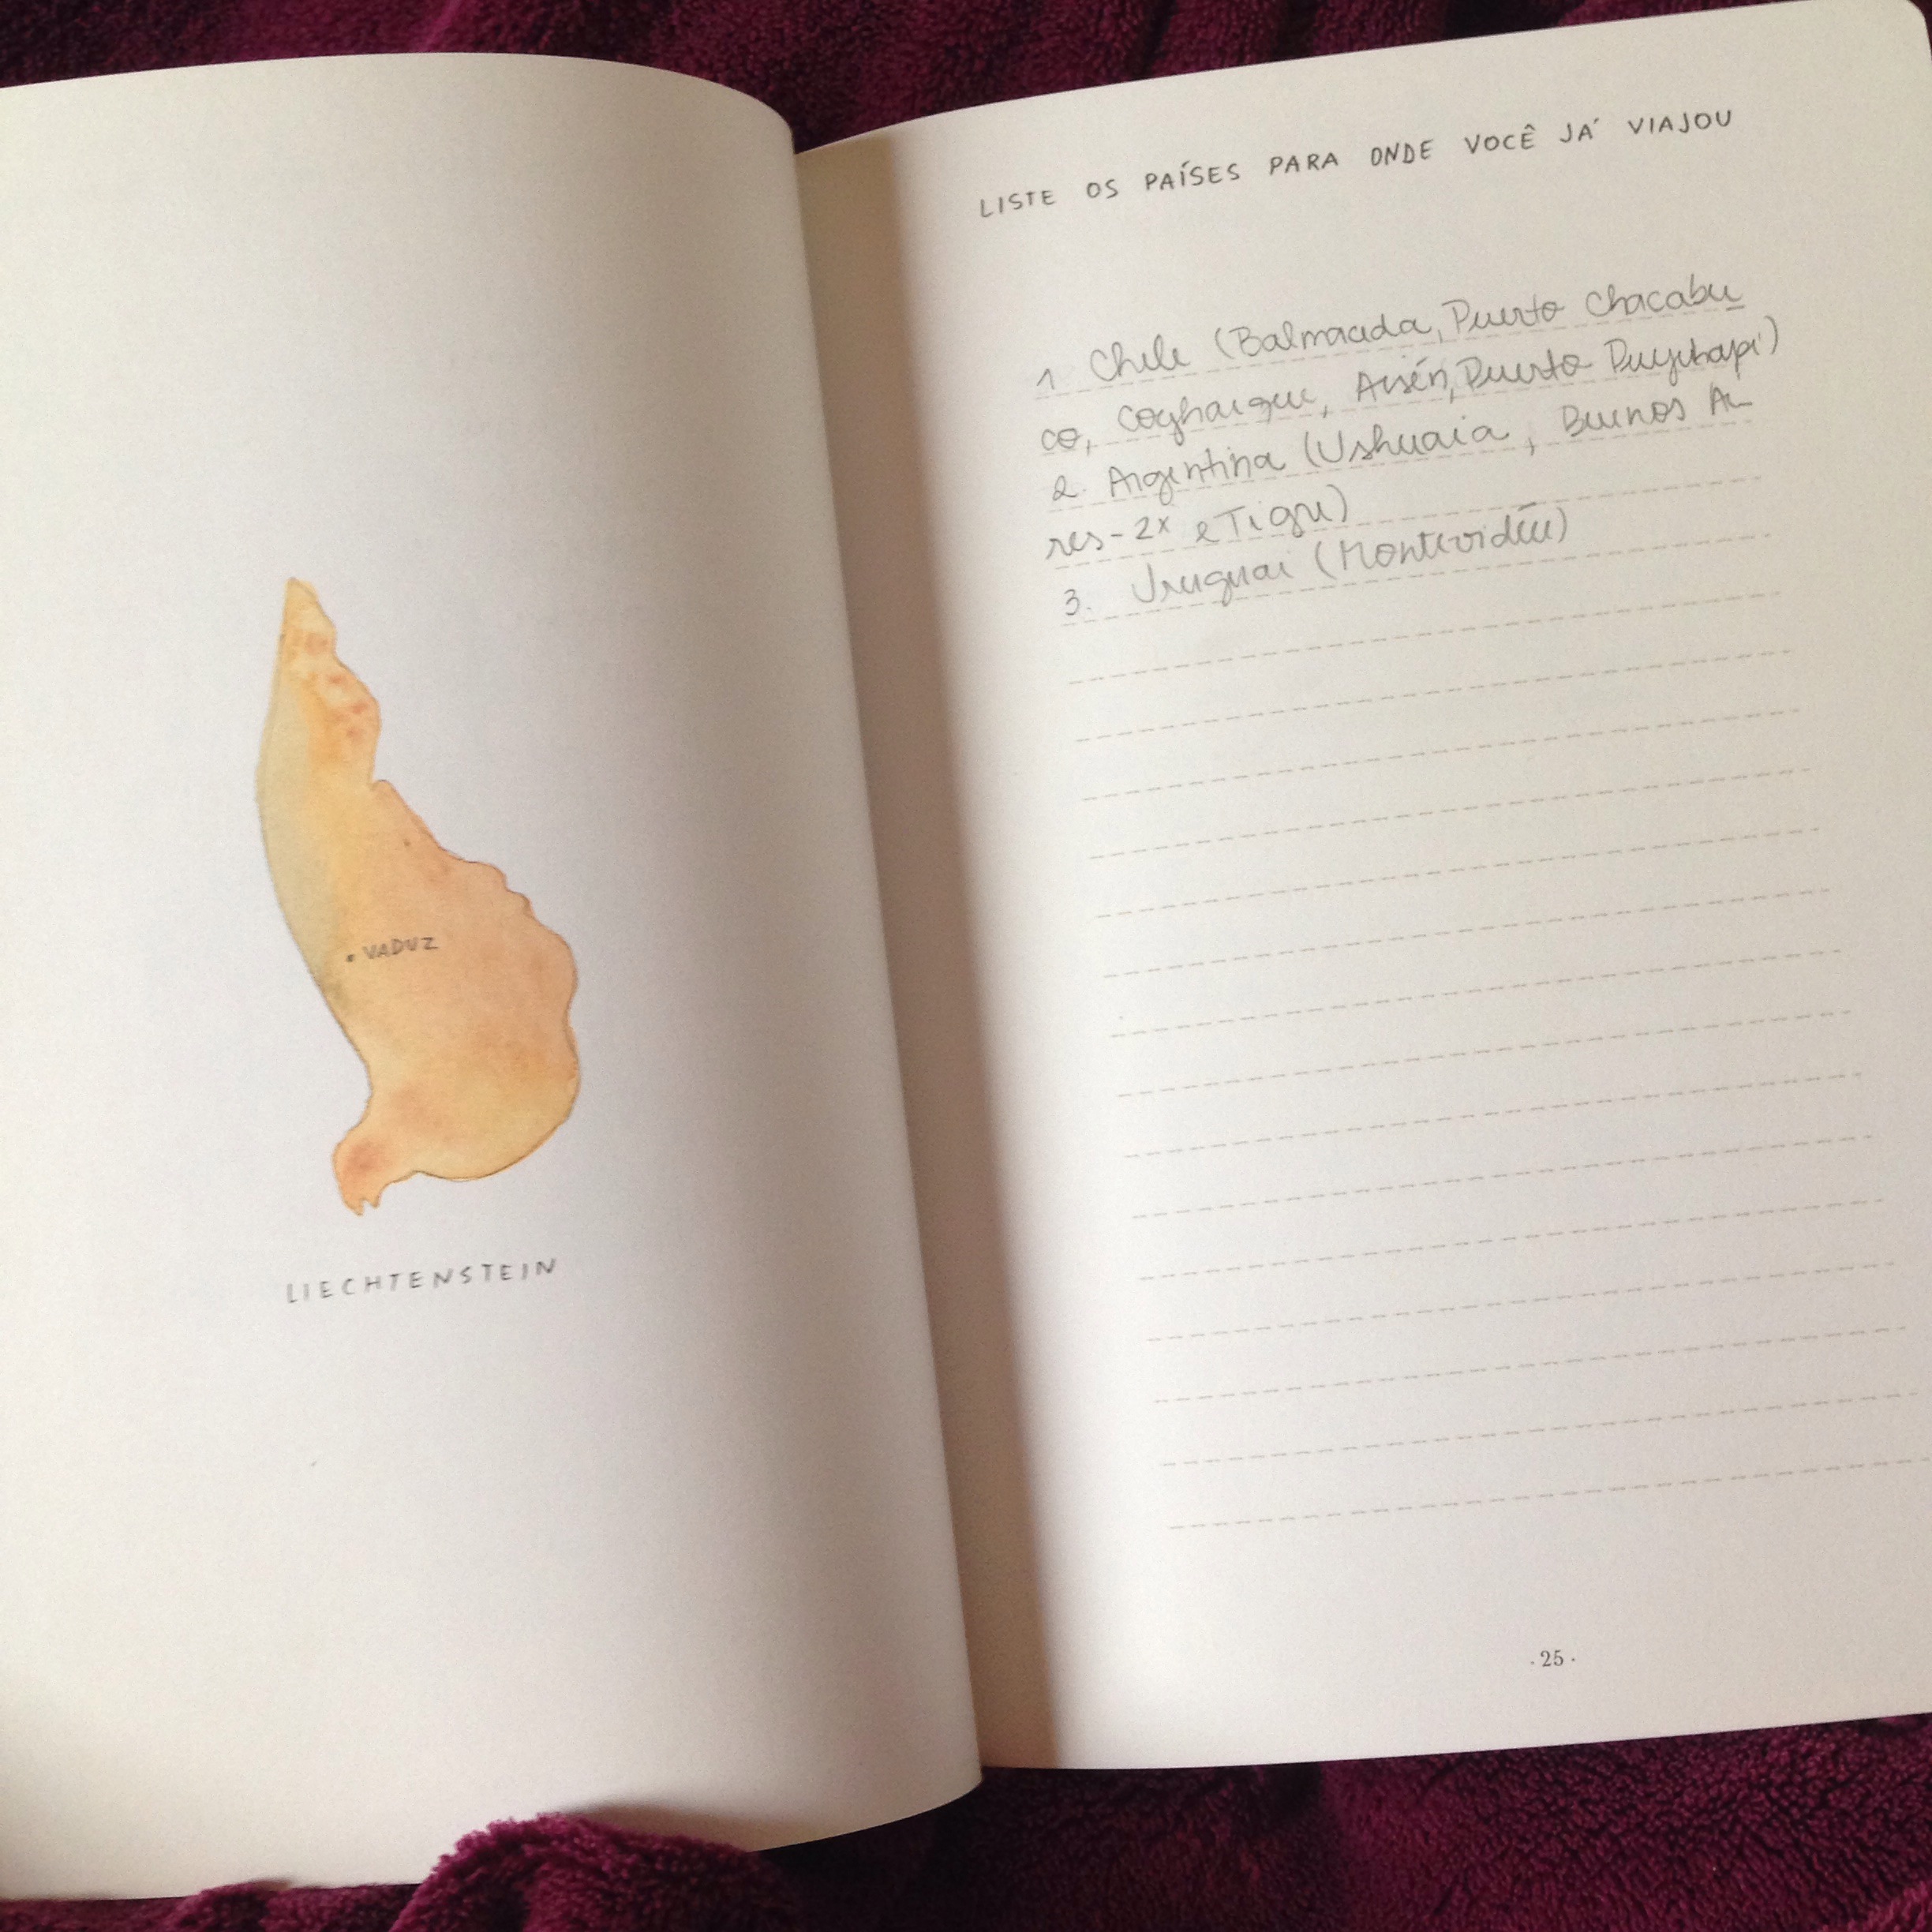 • VADUZ
LIECHTENSTEIN
LISTE OS PAÍSES PARA ONDE VOCÊ JÁ VIAJOU
1 Chile (Balmaceda, Puerto Chacabu
co, Coyhaique, Aisén, Puerto Puyuhapi)
2. Argentina (Ushuaia, Buenos Ai
res - 2x e Tigre)
3. Uruguai (Montevidéu)
· 25 ·